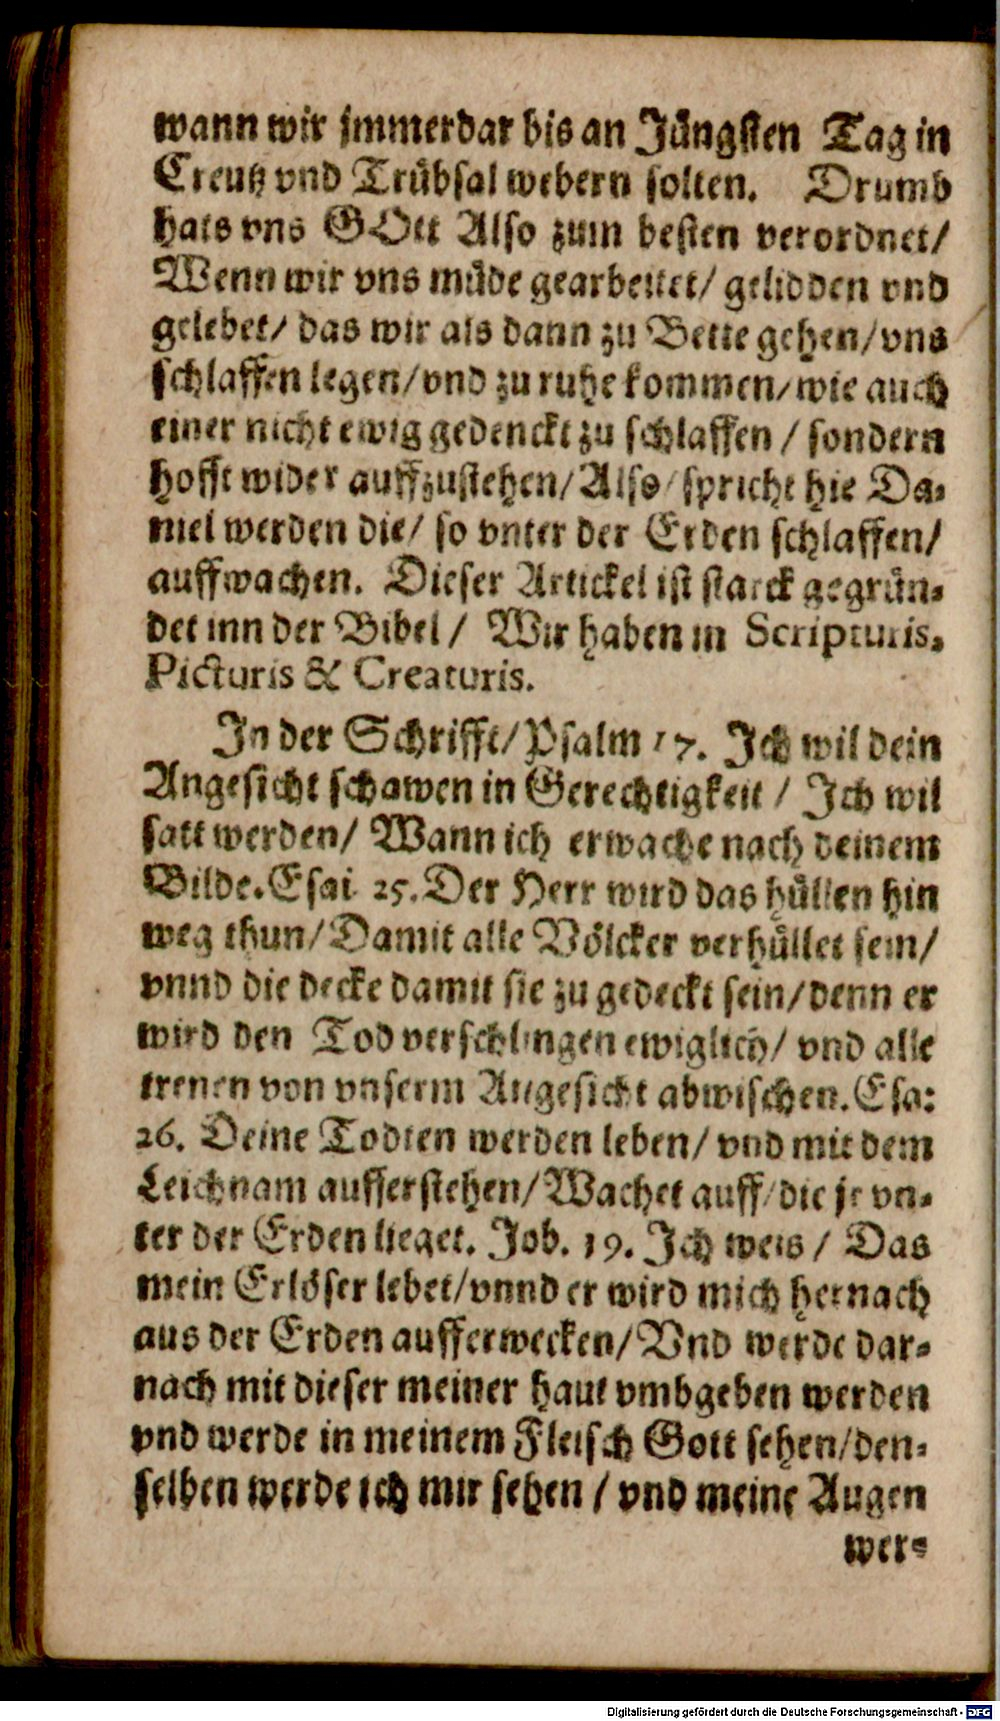 wann wir jmmerdar bis an Jüngsten Tag in
Creutz vnd Trübsal webern solten. Drumb
hats vns GOtt Also zum besten verordnet/
Wenn wir vns müde gearbeitet/ gelidden vnd
gelebet/ das wir als dann zu Bette gehen/ vns
schlaffen legen/ vnd zu ruhe kommen/ wie auch
einer nicht ewig gedenckt zu schlaffen / sondern
hofft wider auffzustehen/ Also/ spricht hie Da-
niel werden die/ so vnter der Erden schlaffen/
auffwachen. Dieser Artickel ist starck gegrün-
det inn der Bibel / Wir haben in Scripturis,
Picturis & Creaturis.
In der Schrifft/ Psalm 17. Ich wil dein
Angesicht schawen in Gerechtigkeit / Ich wil
satt werden/ Wann ich erwache nach deinem
Bilde. Esai 25. Der Herr wird das hüllen hin
weg thun/ Damit alle Völcker verhüllet sein/
vnnd die decke damit sie zu gedeckt sein/ denn er
wird den Tod verschlingen ewiglich/ vnd alle
trenen von vnserm Angesicht abwischen. Esa:
26. Deine Todten werden leben/ vnd mit dem
Leichnam aufferstehen/ Wachet auff/ die jr vn-
ter der Erden lieget. Job. 19. Ich weis / Das
mein Erlöser lebet/ vnnd er wird mich hernach
aus der Erden aufferwecken/ Vnd werde dar-
nach mit dieser meiner haut vmbgeben werden
vnd werde in meinem Fleisch Gott sehen/ den-
selben werde ich mir sehen / vnd meine Augen
wer-
Digitalisierung gefördert durch die Deutsche Forschungsgemeinschaft - DFG